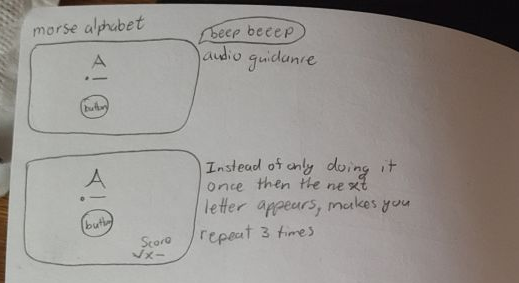 morse alphabet
beep beeep
audio guidance
A
.—
button
A
.—
button
Score
✓x–
Instead of only doing it
once then the next
letter appears, makes you
repeat 3 times